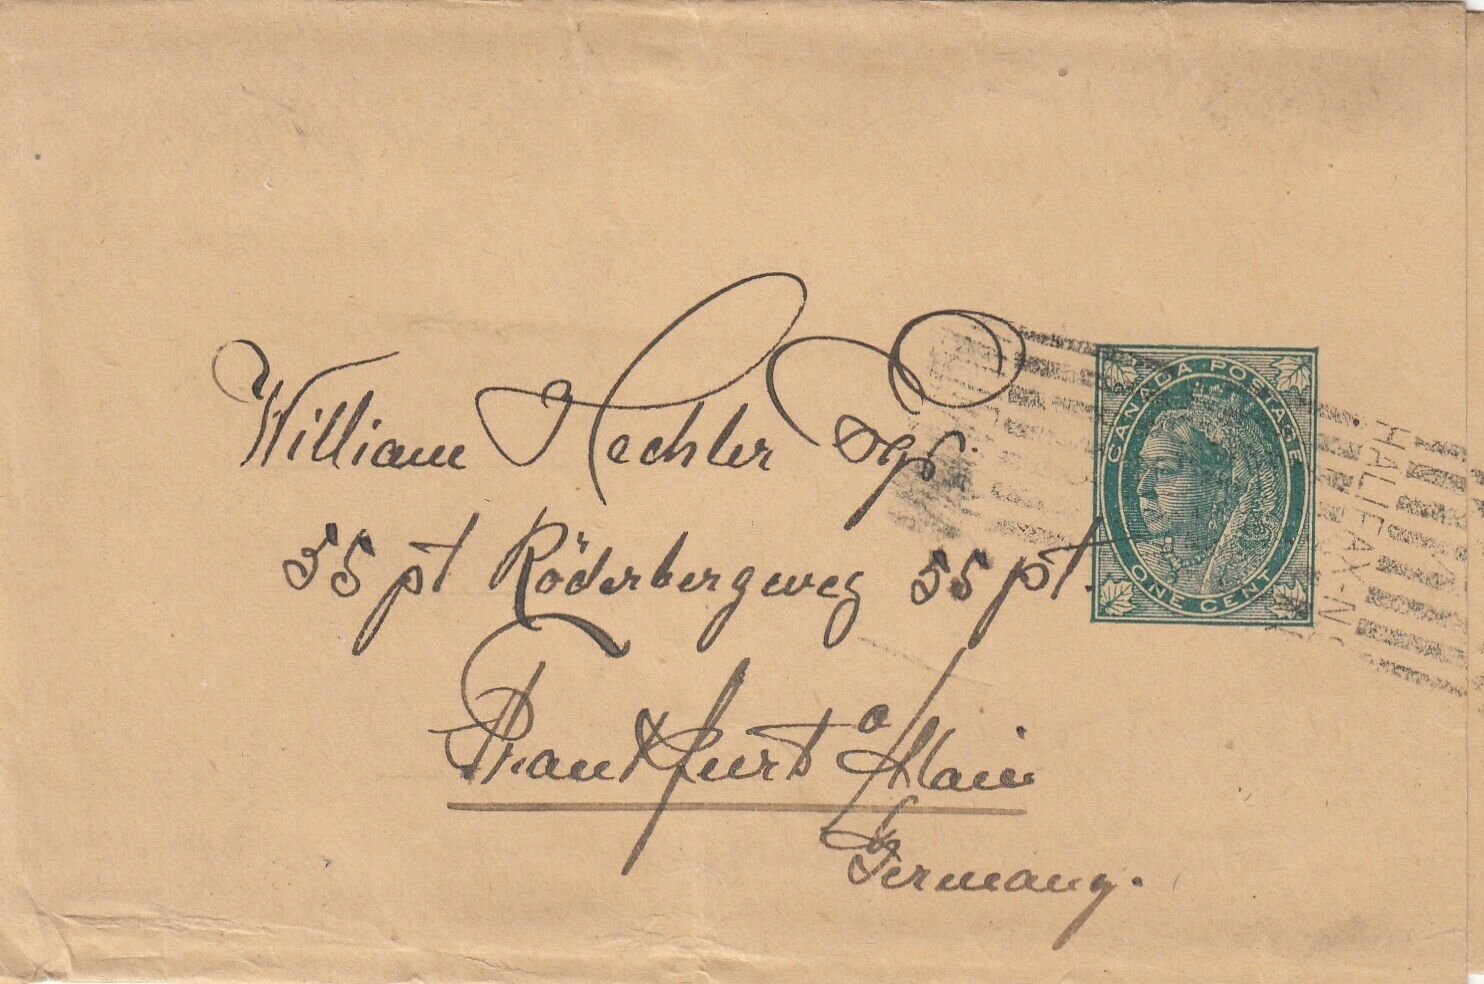 William Hechler
55 pt Röderbergweg 55 pt.
Frankfurt a/Main
Germany.
CANADA POSTAGE
ONE CENT
HALIFAX-N